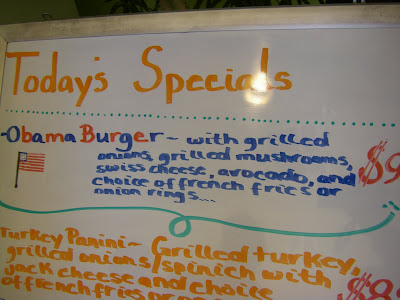 Today's Specials
-Obama Burger ~ with grilled
onions, grilled mushrooms,
swiss cheese, avocado, and
choice of french fries or
onion rings....
$9
Turkey Panini ~ Grilled turkey,
grilled onions/spinich with
jack cheese and choice
of french fries or
$8